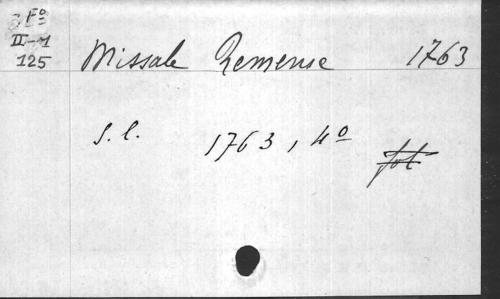 Fº
II-1
125
Missale Remense 1763
s.l. 1763, 4º